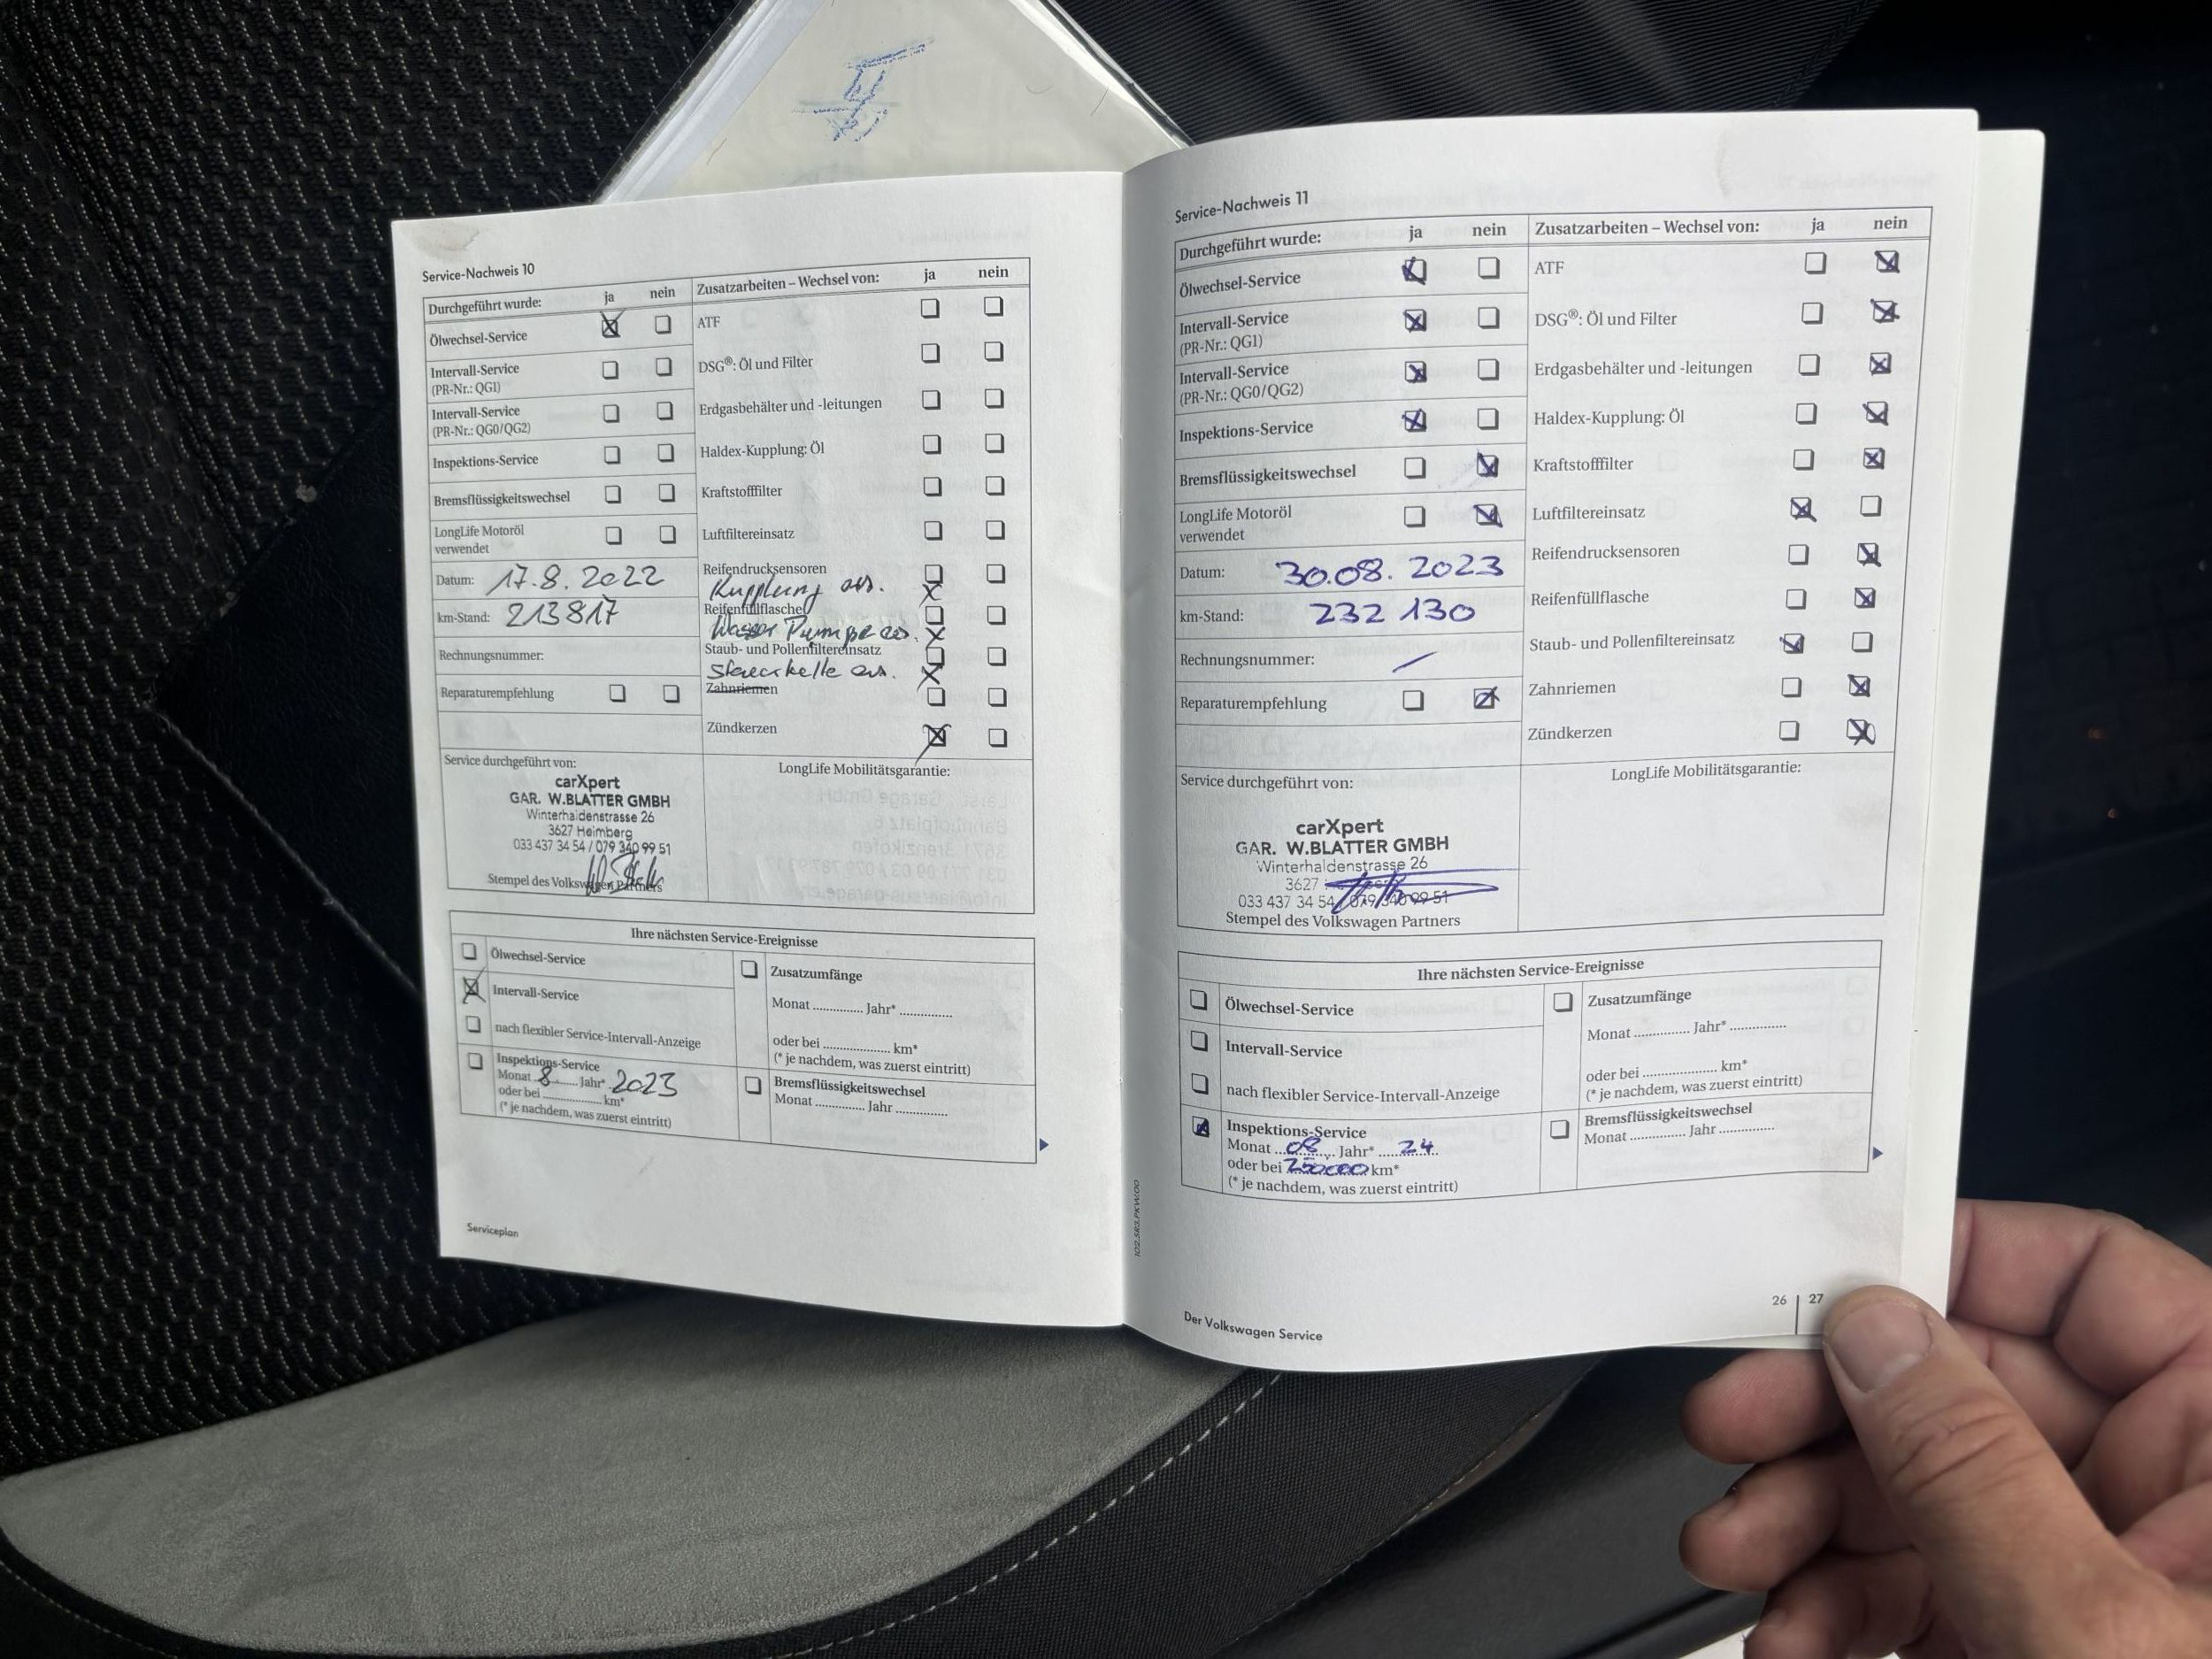 Service-Nachweis 10
Durchgeführt wurde: ja nein
Ölwechsel-Service
Intervall-Service
(PR-Nr.: QG1)
Intervall-Service
(PR-Nr.: QG0/QG2)
Inspektions-Service
Bremsflüssigkeitswechsel
LongLife Motoröl
verwendet
Datum: 17.8.2022
km-Stand: 213817
Rechnungsnummer:
Reparaturempfehlung
Zusatzarbeiten – Wechsel von: ja nein
ATF
DSG®: Öl und Filter
Erdgasbehälter und -leitungen
Haldex-Kupplung: Öl
Kraftstofffilter
Luftfiltereinsatz
Reifendrucksensoren
Kupplung ers. X
Reifenfüllflasche
Wasser Pumpe ers. X
Staub- und Pollenfiltereinsatz
Steuerkette ers. X
Zahnriemen
Zündkerzen
Service durchgeführt von:
carXpert
GAR. W.BLATTER GMBH
Winterhaldenstrasse 26
3627 Heimberg
033 437 34 54 / 079 340 99 51
Stempel des Volkswagen Partners
LongLife Mobilitätsgarantie:
Ihre nächsten Service-Ereignisse
Ölwechsel-Service
Intervall-Service
nach flexibler Service-Intervall-Anzeige
Inspektions-Service
Monat 8 Jahr* 2023
oder bei .................... km*
(* je nachdem, was zuerst eintritt)
Zusatzumfänge
Monat .............. Jahr* ...............
oder bei .................... km*
(* je nachdem, was zuerst eintritt)
Bremsflüssigkeitswechsel
Monat .............. Jahr ...............
Serviceplan
Service-Nachweis 11
Durchgeführt wurde: ja nein
Ölwechsel-Service
Intervall-Service
(PR-Nr.: QG1)
Intervall-Service
(PR-Nr.: QG0/QG2)
Inspektions-Service
Bremsflüssigkeitswechsel
LongLife Motoröl
verwendet
Datum: 30.08.2023
km-Stand: 232 130
Rechnungsnummer: –
Reparaturempfehlung
Zusatzarbeiten – Wechsel von: ja nein
ATF
DSG®: Öl und Filter
Erdgasbehälter und -leitungen
Haldex-Kupplung: Öl
Kraftstofffilter
Luftfiltereinsatz
Reifendrucksensoren
Reifenfüllflasche
Staub- und Pollenfiltereinsatz
Zahnriemen
Zündkerzen
Service durchgeführt von:
carXpert
GAR. W.BLATTER GMBH
Winterhaldenstrasse 26
3627
033 437 34 54 / 079 340 99 51
Stempel des Volkswagen Partners
LongLife Mobilitätsgarantie:
Ihre nächsten Service-Ereignisse
Ölwechsel-Service
Intervall-Service
nach flexibler Service-Intervall-Anzeige
Inspektions-Service
Monat 08 Jahr* 24
oder bei 250000 km*
(* je nachdem, was zuerst eintritt)
Zusatzumfänge
Monat .............. Jahr* ...............
oder bei .................... km*
(* je nachdem, was zuerst eintritt)
Bremsflüssigkeitswechsel
Monat .............. Jahr ...............
102.5R3.PKW.00
Der Volkswagen Service
26 | 27